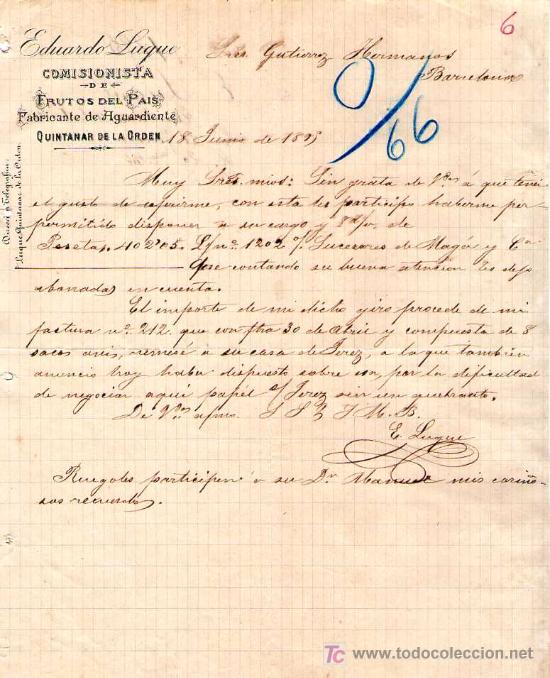 6
Eduardo Luque
COMISIONISTA
DE
FRUTOS DEL PAIS
Fabricante de Aguardiente
QUINTANAR DE LA ORDEN
Luque Quintanar de la Orden
Sres Gutierrez Hermanos
Barcelona
9/66
18 Junio de
Muy Sres. mios: Sin grata de Vds á que
el gusto de con esta les participo haberme
permitido disponer a su cargo y de
Pesetas, 402'05. Sucesores de y Ca
Que contando su buena atencion les dejo
abonadas en cuenta.
El importe de mi dicho giro procede de mi
factura nº 212. que con fha 30 de Abril y compuesta de 8
sacos anis, remesé á su casa de Jerez, a la que tambien
anuncio hoy haber dispuesto sobre por la dificultad
de negociar aqui papel s/ Jerez sin un quebranto.
De Vds afmo. S S Q B
E. Luque
Ruegoles participen á su Dn Manuel mis cariño-
sos recuerdos.
TC www.todocoleccion.net